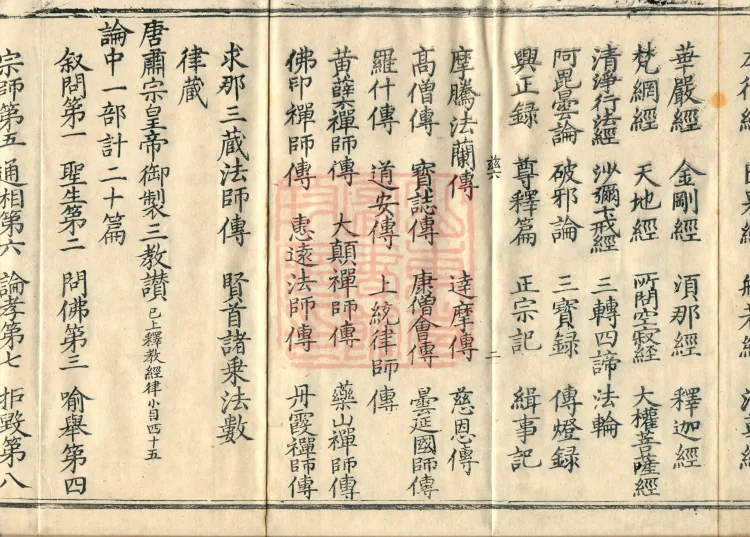 華嚴經 金剛經 須那經 釋迦經
梵網經 天地經 所問空寂經 大權菩薩經
清淨行法經 沙彌十戒經 三轉四諦法輪
阿毘曇論 破邪論 三寶録 傳燈録
興正録 尊釋篇 正宗記 緝事記
摩騰法蘭傳 達摩傳 慈恩傳
高僧傳 寳誌傳 康僧會傳 曇延國師傳
羅什傳 道安傳 上統律師傳
黄蘖禪師傳 大顛禪師傳 藥山禪師傳
佛印禪師傳 惠遠法師傳 丹霞禪師傳
求那三蔵法師傳 賢首諸乗法數
律蔵
唐肅宗皇帝御製三教讃 已上釋教經律小目四十五
論中一部計二十篇
叙問第一 聖生第二 問佛第三 喻舉第四
宗師第五 通相第六 論孝第七 拒毀第八